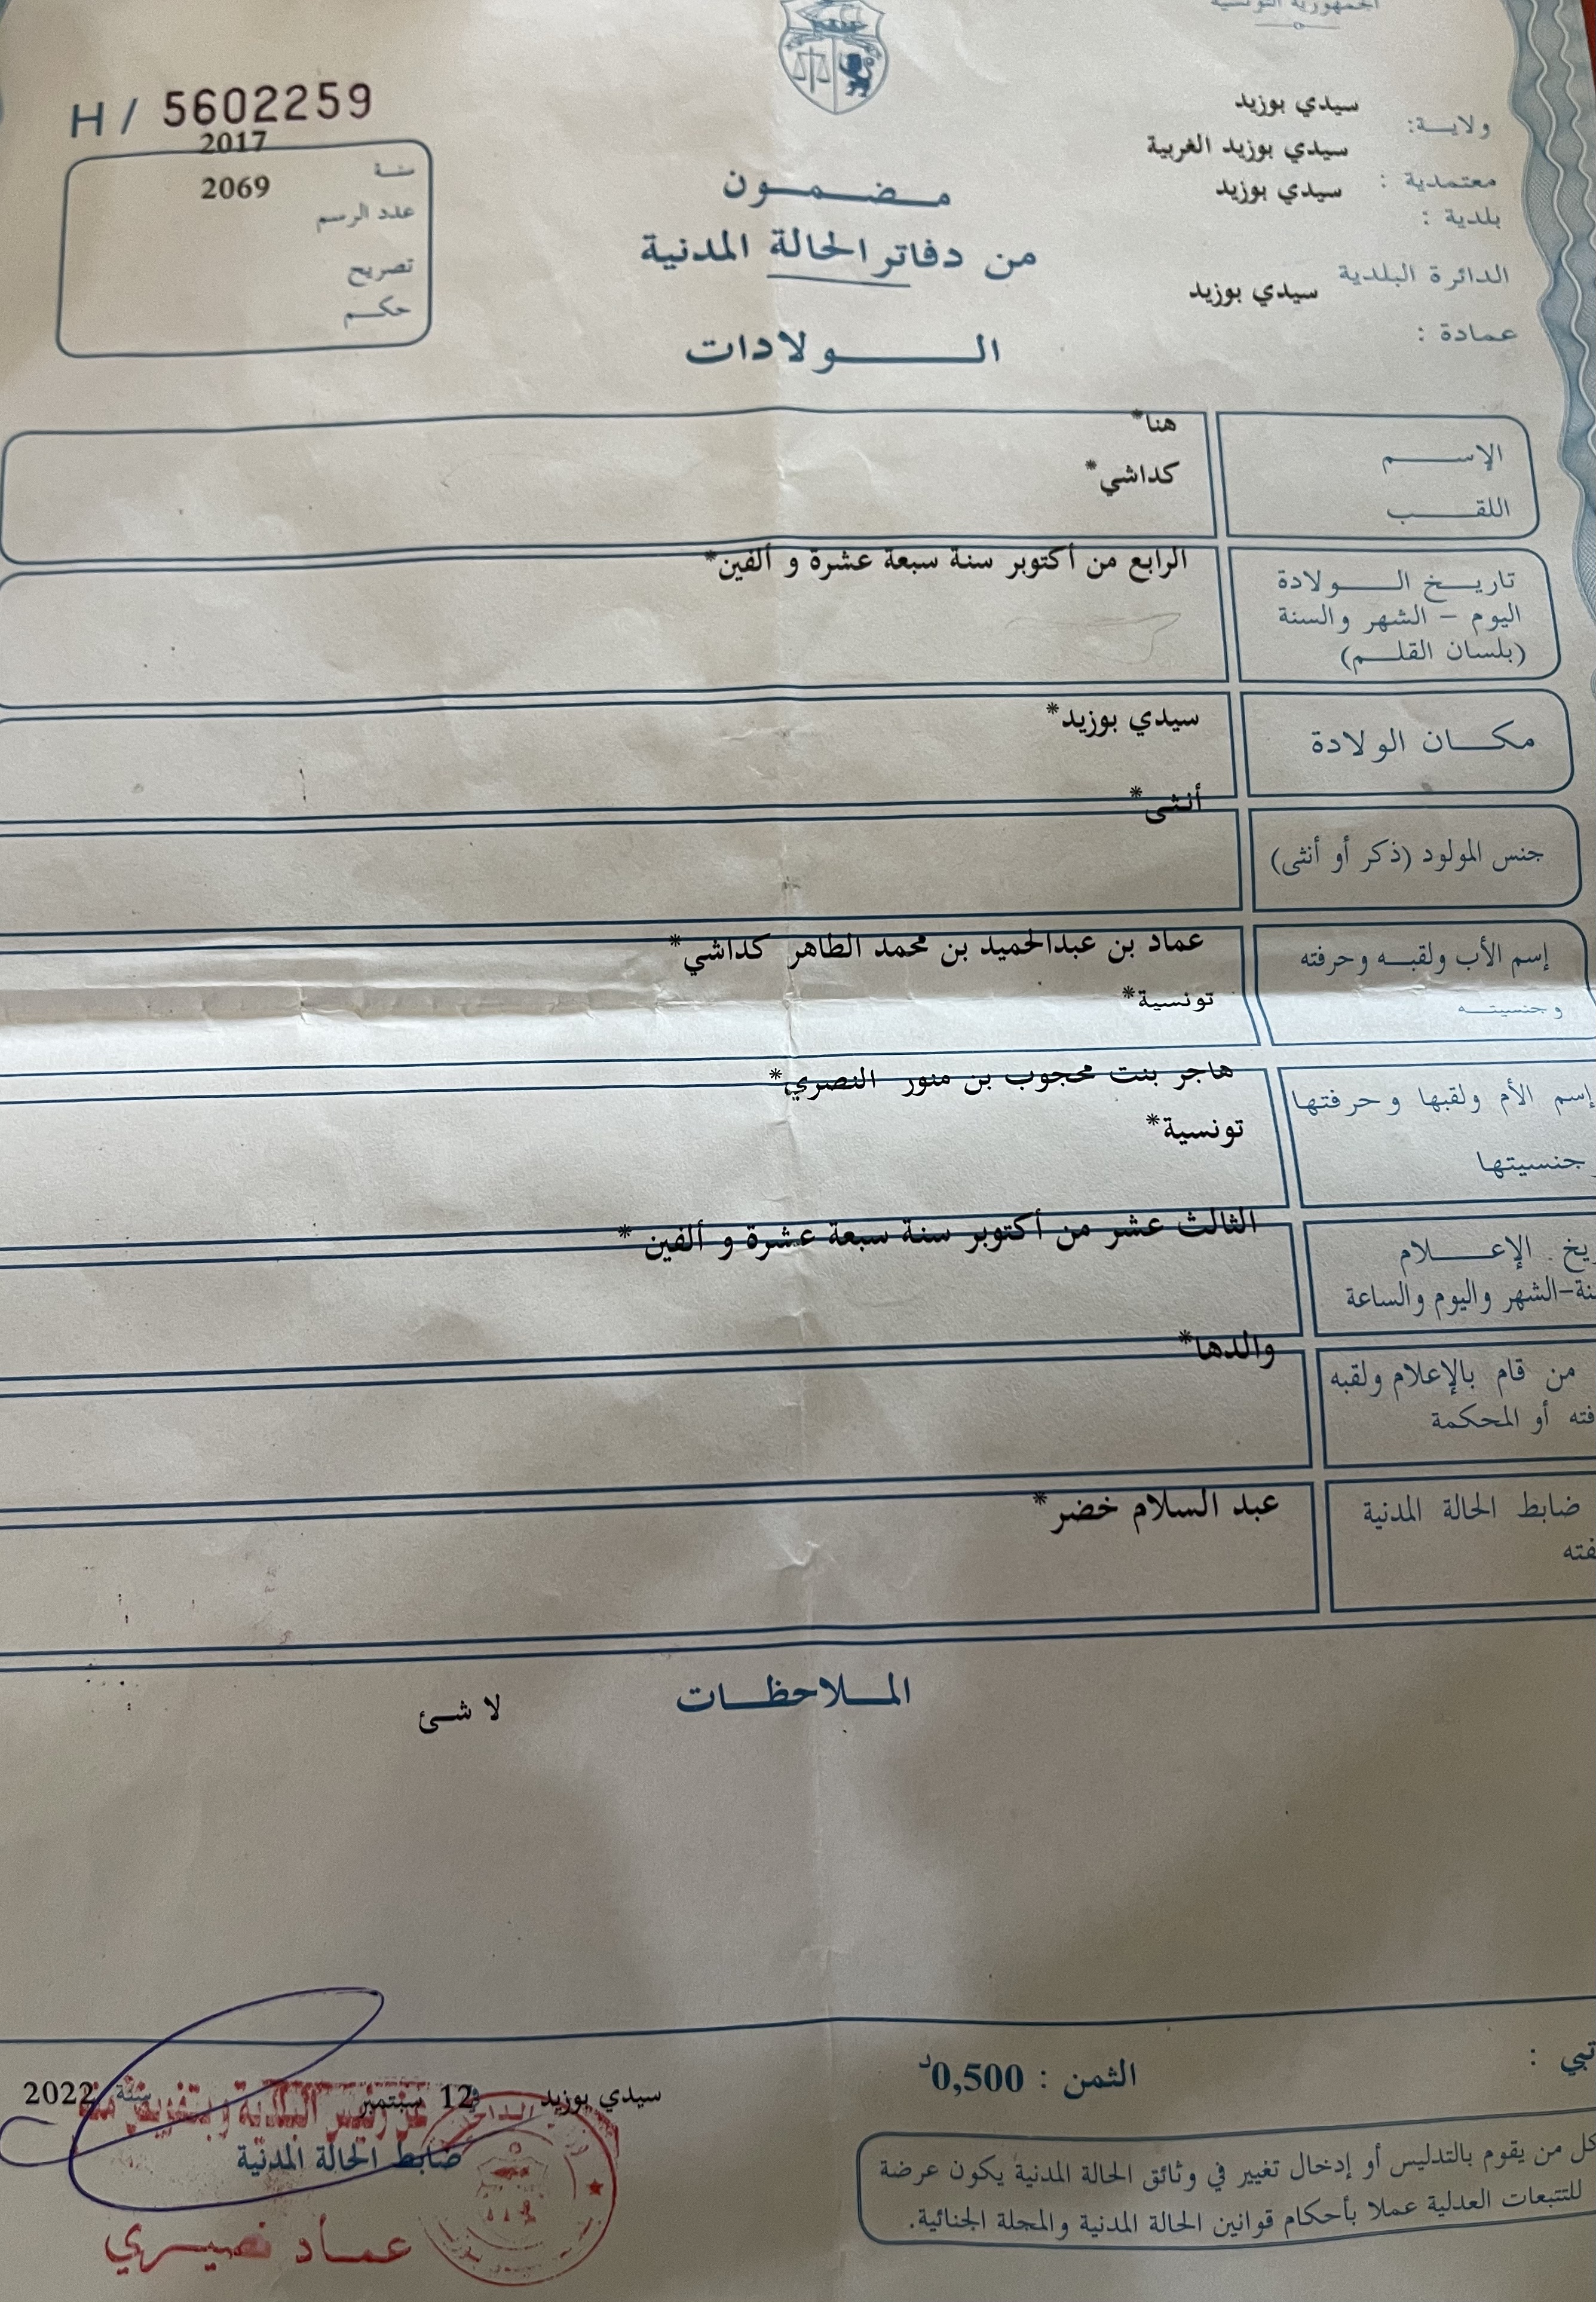 الجمهورية التونسية
ولايـة: سيدي بوزيد
معتمدية : سيدي بوزيد الغربية
بلدية : سيدي بوزيد
الدائرة البلدية سيدي بوزيد
عمادة :
H / 5602259
سنة 2017
عدد الرسم 2069
تصريح
حكم
مضمون
من دفاتر الحالة المدنية
الولادات
الإسم هنا*
اللقب كداشي*
تاريخ الولادة الرابع من أكتوبر سنة سبعة عشرة و ألفين*
اليوم - الشهر والسنة
(بلسان القلم)
مكان الولادة سيدي بوزيد*
جنس المولود (ذكر أو أنثى) أنثى*
إسم الأب ولقبه وحرفته عماد بن عبدالحميد بن محمد الطاهر كداشي*
وجنسيته تونسية*
إسم الأم ولقبها وحرفتها هاجر بنت محجوب بن منور النصري*
جنسيتها تونسية*
الإعلام الثالث عشر من أكتوبر سنة سبعة عشرة و ألفين *
الشهر واليوم والساعة
من قام بالإعلام ولقبه والدها*
أو المحكمة
ضابط الحالة المدنية عبد السلام خضر*
الملاحظات
لا شئ
الثمن : 0,500د
كل من يقوم بالتدليس أو إدخال تغيير في وثائق الحالة المدنية يكون عرضة
للتتبعات العدلية عملا بأحكام قوانين الحالة المدنية والمجلة الجنائية.
سيدي بوزيد في 12 سبتمبر سنة 2022
عن رئيس البلدية وبتفويض منه
ضابط الحالة المدنية
عماد نصيري